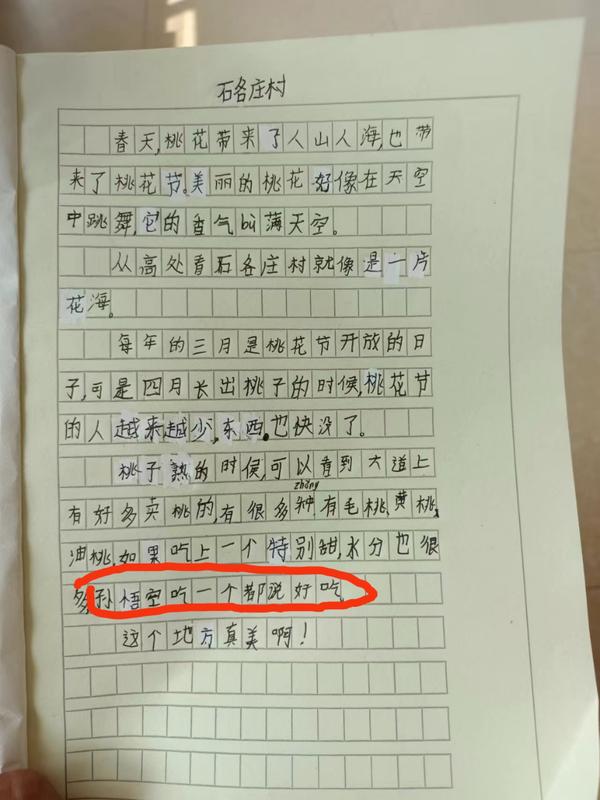 石各庄村
春天,桃花带来了人山人海,也带
来了桃花节。美丽的桃花好像在天空
中跳舞,它的香气bù满天空。
从高处看石各庄村就像是一片
花海。
每年的三月是桃花节开放的日
子,可是四月长出桃子的时候,桃花节
的人越来越少,东西也快没了。
桃子熟的时候,可以看到大道上
zhǒng
有好多卖桃的,有很多种,有毛桃、黄桃、
油桃,如果吃上一个特别甜,水分也很
多,孙悟空吃一个都说好吃。
这个地方真美啊!